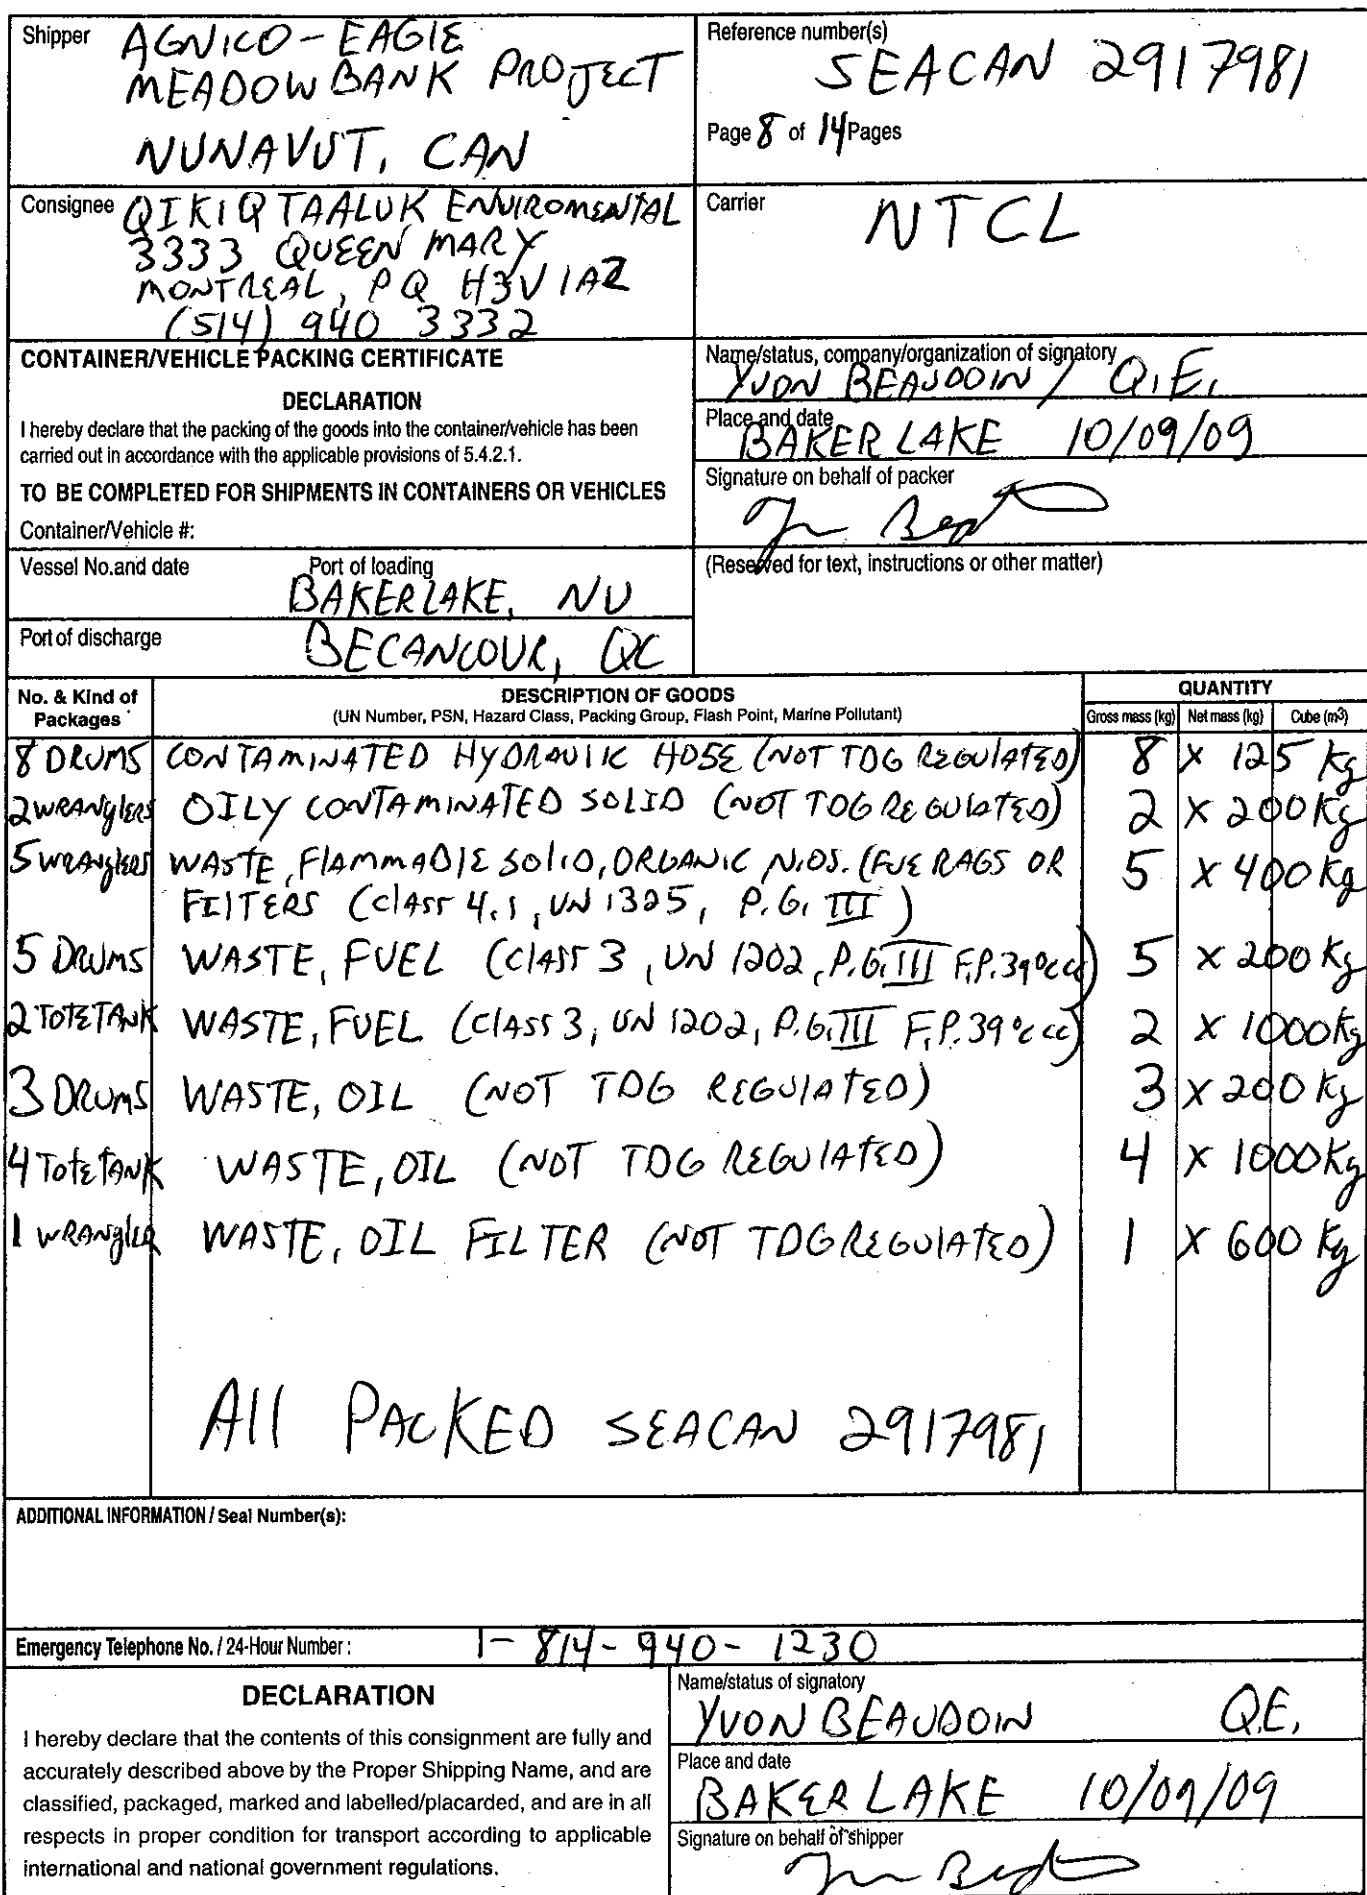 Shipper AGNICO-EAGIE
MEADOWBANK PROJECT
NUNAVUT, CAN
Reference number(s)
SEACAN 2917981
Page 8 of 14 Pages
Consignee QIKIQTAALUK ENVIROMENTAL
3333 QUEEN MARY
MONTREAL, PQ H3V 1A2
(514) 940 3332
Carrier NTCL
CONTAINER/VEHICLE PACKING CERTIFICATE
DECLARATION
I hereby declare that the packing of the goods into the container/vehicle has been
carried out in accordance with the applicable provisions of 5.4.2.1.
TO BE COMPLETED FOR SHIPMENTS IN CONTAINERS OR VEHICLES
Container/Vehicle #:
Name/status, company/organization of signatory
YVON BEAUDOIN / Q.E.
Place and date
BAKER LAKE 10/09/09
Signature on behalf of packer
Vessel No.and date
Port of loading
BAKERLAKE, NU
(Reserved for text, instructions or other matter)
Port of discharge
BECANCOUR, QC
No. & Kind of
Packages
DESCRIPTION OF GOODS
(UN Number, PSN, Hazard Class, Packing Group, Flash Point, Marine Pollutant)
QUANTITY
Gross mass (kg) Net mass (kg) Cube (m³)
8 DRUMS CONTAMINATED HYDRAULIK HOSE (NOT TDG REGULATED) 8 X 125 Kg
2 WRANglERS OILY CONTAMINATED SOLID (NOT TDG REGULATED) 2 X 200 Kg
5 WRANglERS WASTE, FlAMMABlE SOlID, ORGANIC N.O.S. (FUE RAGS OR 5 X 400 Kg
FEITERS (ClASS 4.1, UN 1325, P.G. III)
5 DRUMS WASTE, FUEL (ClASS 3, UN 1202, P.G. III F.P. 39°c cc) 5 X 200 Kg
2 TOTE TANK WASTE, FUEL (ClASS 3, UN 1202, P.G. III F.P. 39°c cc) 2 X 1000 Kg
3 DRUMS WASTE, OIL (NOT TDG REGUlATED) 3 X 200 Kg
4 TOTE TANK WASTE, OIL (NOT TDG REGUlATED) 4 X 1000 Kg
1 WRANglER WASTE, OIL FILTER (NOT TDG REGUlATED) 1 X 600 Kg
All PACKED SEACAN 2917981
ADDITIONAL INFORMATION / Seal Number(s):
Emergency Telephone No. / 24-Hour Number : 1-814-940-1230
DECLARATION
I hereby declare that the contents of this consignment are fully and
accurately described above by the Proper Shipping Name, and are
classified, packaged, marked and labelled/placarded, and are in all
respects in proper condition for transport according to applicable
international and national government regulations.
Name/status of signatory
YVON BEAUDOIN Q.E.
Place and date
BAKER LAKE 10/09/09
Signature on behalf of shipper